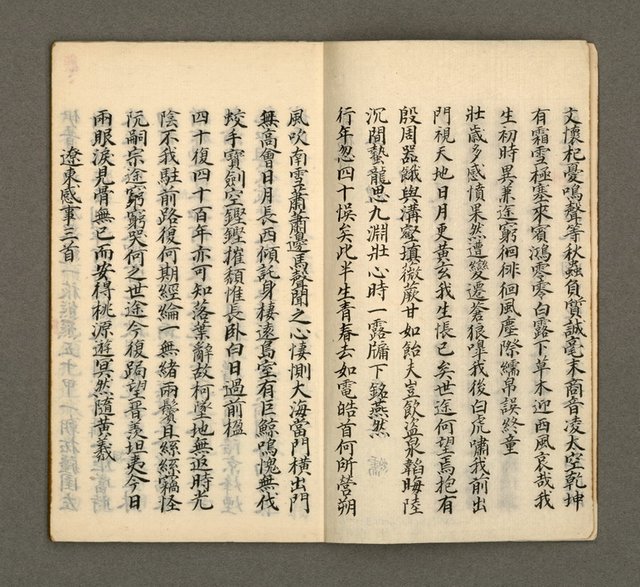 文懷杞憂鳴聲等秋蟲負質誠毫末商音凌太空乾坤
有霜雪極塞來賓鴻零零白露下草木迎西風哀哉我
生初時異兼途窮徘徊風塵際繻帛誤終童
壯歲多感憤果然遭變遷蒼狼嗥我後白虎嘯我前出
門視天地日月更黃玄我生悵已矣世途何望焉抱有
殷周器餓與溝壑填薇蕨甘如飴夫豈飲盜泉韜晦陸
沉間蟄龍思九淵壯心時一露牖下銘燕然
行年忽四十悞矣此半生青春去如電皓首何所營朔
風吹南雪蕭蕭邊馬聲聞之心悽惻大海當門橫出門
無高會日月長西傾託身棲遠島室有巨鯨鳴愧無伐
蛟手寶劍空鏗鏗摧頹惟長臥白日過前楹
四十復四十百年亦可知落葉辭故柯墜地無返時光
陰不我駐前路復何期經綸一無緒兩鬢且絲絲竊怪
阮嗣宗途窮窮哭何之世途今復蹋望晋羨坦夷今日
兩眼淚見骨無已而安得桃源遊冥然隨黃羲
遼東感事三首